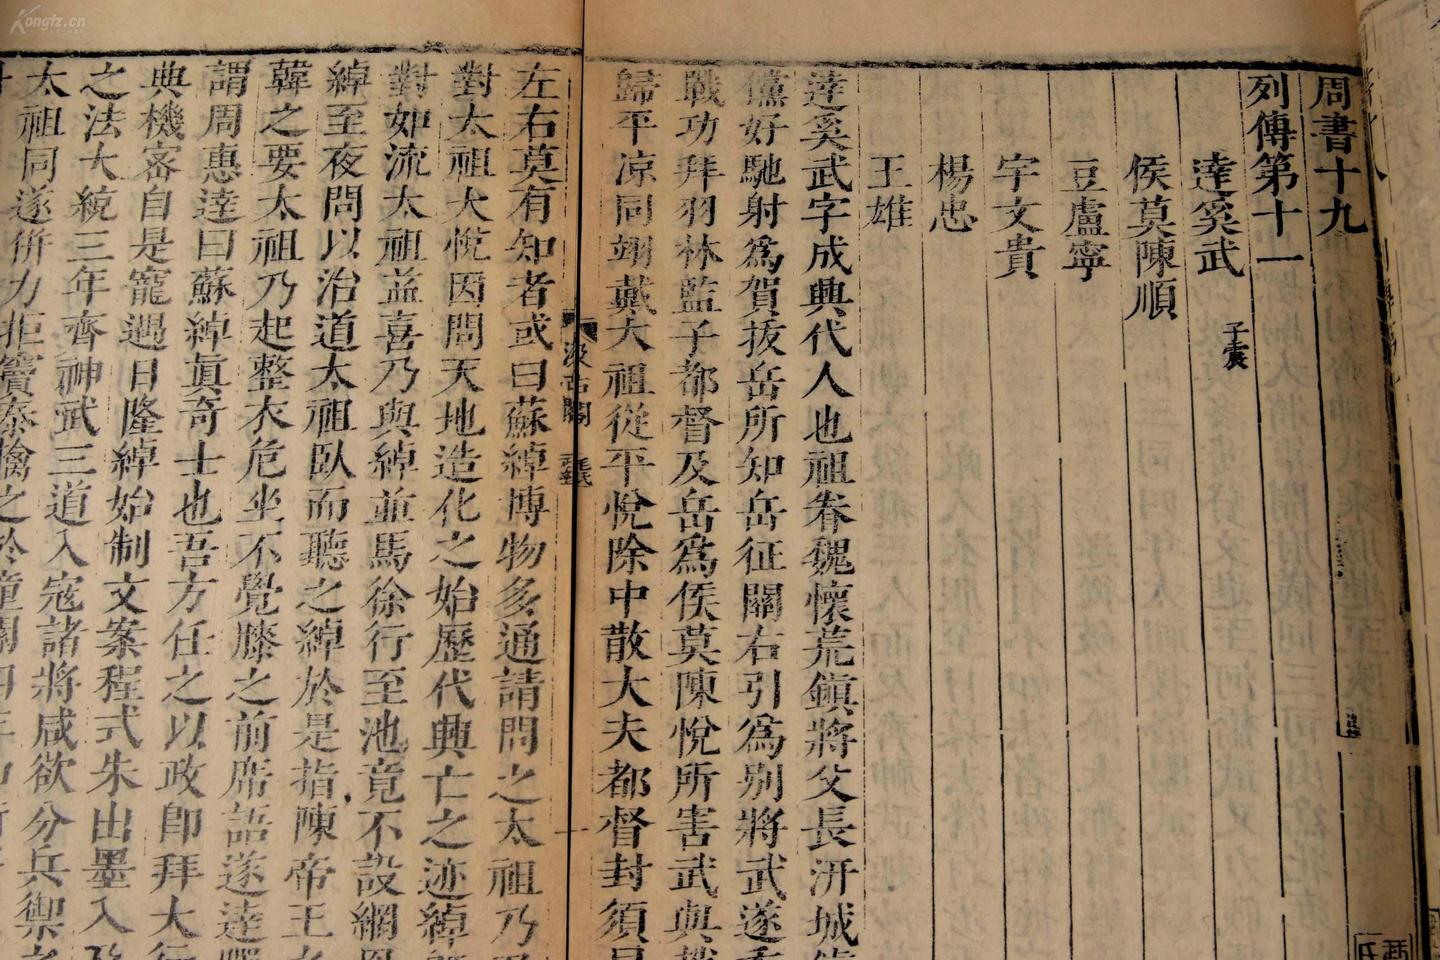 周書十九
列傳第十一
達奚武 子震
侯莫陳順
豆盧寧
宇文貴
楊忠
王雄
達奚武字成興代人也祖眷魏懷荒鎮將父長汧城
儻好馳射爲賀拔岳所知岳征關右引爲别將武遂
戰功拜羽林監子都督及岳爲侯莫陳悅所害武與
歸平凉同翊戴太祖從平悅除中散大夫都督封須
汲古閣
毛氏
左右莫有知者或曰蘇綽博物多通請問之太祖乃
對太祖大悅因問天地造化之始歷代興亡之迹綽
對如流太祖益喜乃與綽並馬徐行至池竟不設網
綽至夜問以治道太祖臥而聽之綽於是指陳帝王
韓之要太祖乃起整衣危坐不覺膝之前席語遂達
謂周惠達曰蘇綽眞奇士也吾方任之以政即拜大行
典機密自是寵遇日隆綽始制文案程式朱出墨入
之法大統三年齊神武三道入寇諸將咸欲分兵禦
太祖同遂併力拒竇泰擒之於潼關四年
Kongfz.cn